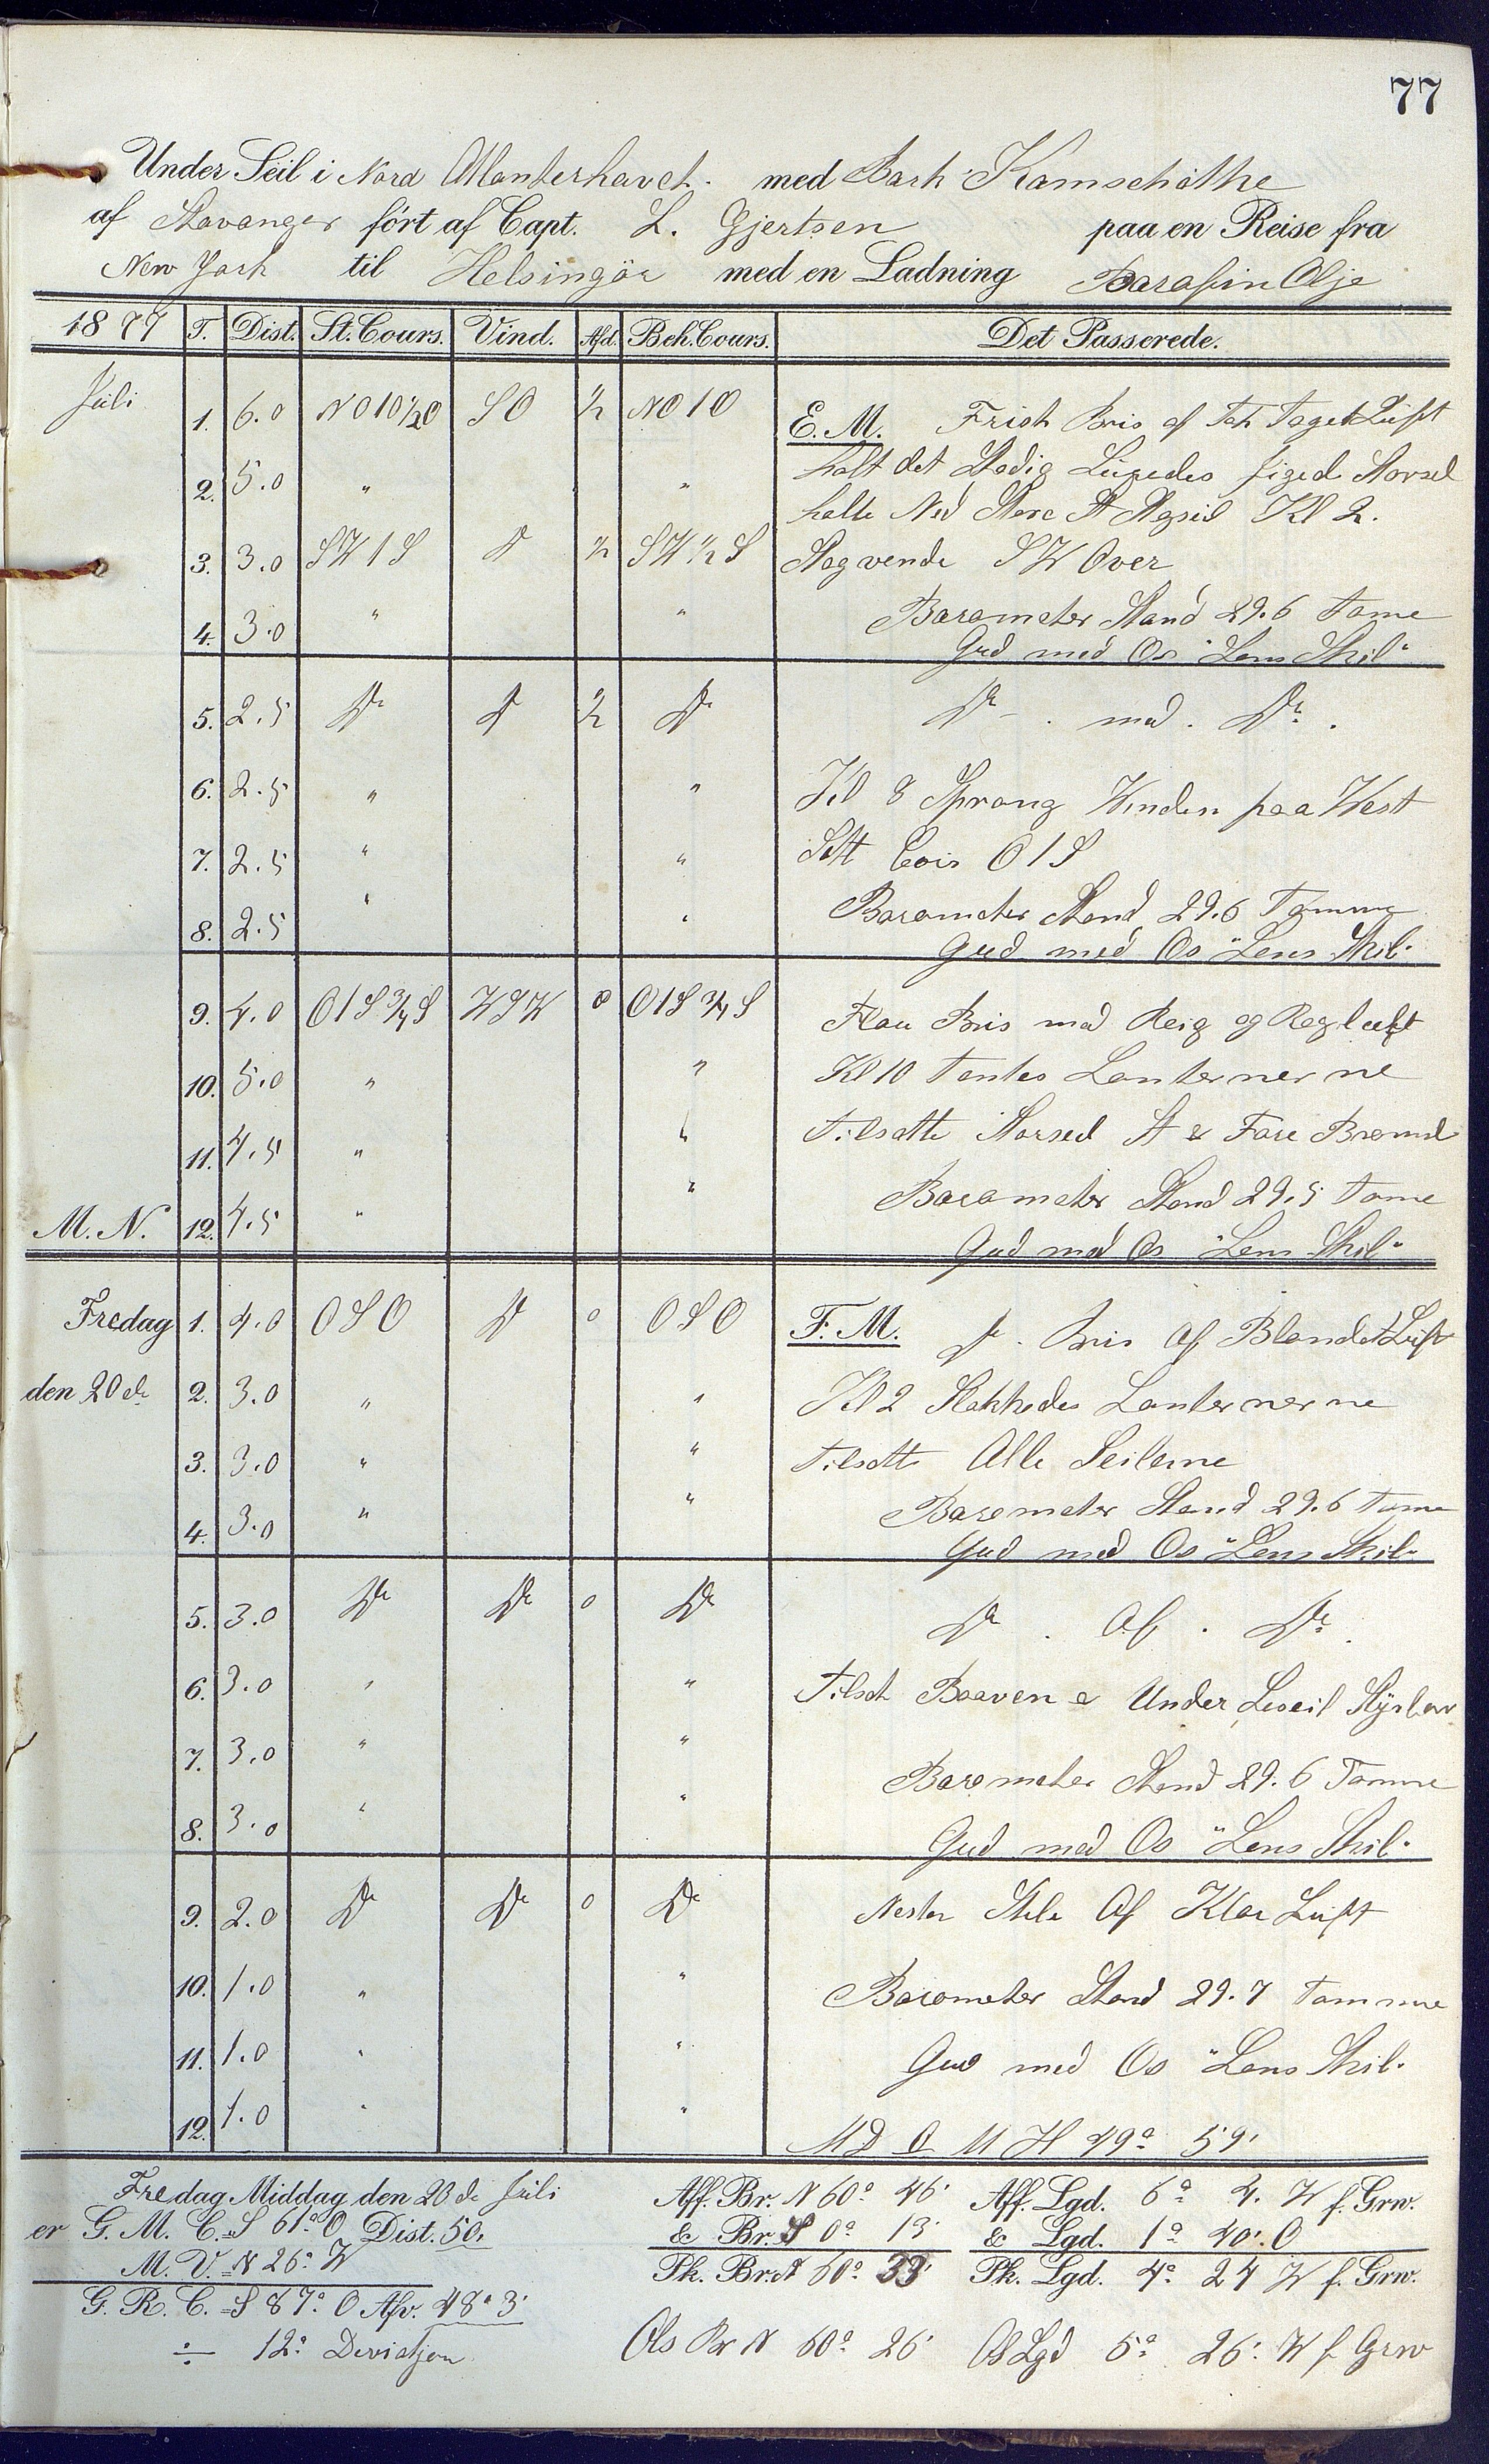 77
Under Seil i Nord Atlanterhavet. med Bark Kamschatke
af Stavanger fört af Capt. L. Gjertsen paa en Reise fra
New York til Helsingör med en Ladning Parafin Olje
1877 T. Dist. St. Cours. Vind. Afd. Beh. Cours. Det Passerede.
Juli 1. 6.0 NO1O½O SO ½ NO1O E. M. Frisk Bris af Taaget Luft
2. 5.0 " " holt det Stadig
Kl 2.
3. 3.0 SW1S D ½ SW½S Stagvende SW Over
4. 3.0 " " Barometer Stand 29.6 Tome
Gud med Os "Lens Skib"
5. 2.5 Do D ½ Do Do . med . Do .
6. 2.5 " " Kl 8 Sprang Vinden paa West
7. 2.5 " " Satt Cors O1S
8. 2.5 " " Barometer Stand 29.6 Tomme
Gud med Os "Lens Skib"
9. 4.0 O1S¾S WSW 0 O1S¾S Flau Bris med Reig og Regluft
10. 5.0 " " Kl 10 Tentes Lanternerne
11. 4.5 " " Tilsatte Storseil
M. N. 12. 4.5 " " Barometer Stand 29.5 Tome
Gud med Os "Lens Skib"
Fredag 1. 4.0 OSO D 0 OSO F. M. D. Bris Af Blandet Luft
den 20de 2. 3.0 " " Kl 2 Slukkedes Lanternerne
3. 3.0 " " Tilsatte Alle Seilerne
4. 3.0 " " Barometer Stand 29.6 Tome
Gud med Os "Lens Skib"
5. 3.0 Do Do 0 Do Do . Af . Do .
6. 3.0 " " Tilsat Boaven & Under Leseil Styrbor
7. 3.0 " " Barometer Stand 29.6 Tomme
8. 3.0 " " Gud med Os "Lens Skib"
9. 2.0 Do Do 0 Do Nesten Stile Af Klar Luft
10. 1.0 " " Barometer Stand 29.7 Tomme
11. 1.0 " " Gud med Os "Lens Skib"
12. 1.0 " " M D O M H 49° 59'
Fredag Middag den 20de Juli Aff. Br. N 60° 46' Aff. Lgd. 6° 4. W f. Grw.
er G. M. C. = S 61° O Dist. 50. & Br. S 0° 13' & Lgd. 1° 40'. O
M. V. = N 26° W Pk. Br. N 60° 33' Pk. Lgd. 4° 24 W f. Grw.
G. R. C. = S 87° O Afv. 48° 3'
÷ 12° Deviatjon Obs Br N 60° 26' Ob Lgd 5° 26' W f Grw